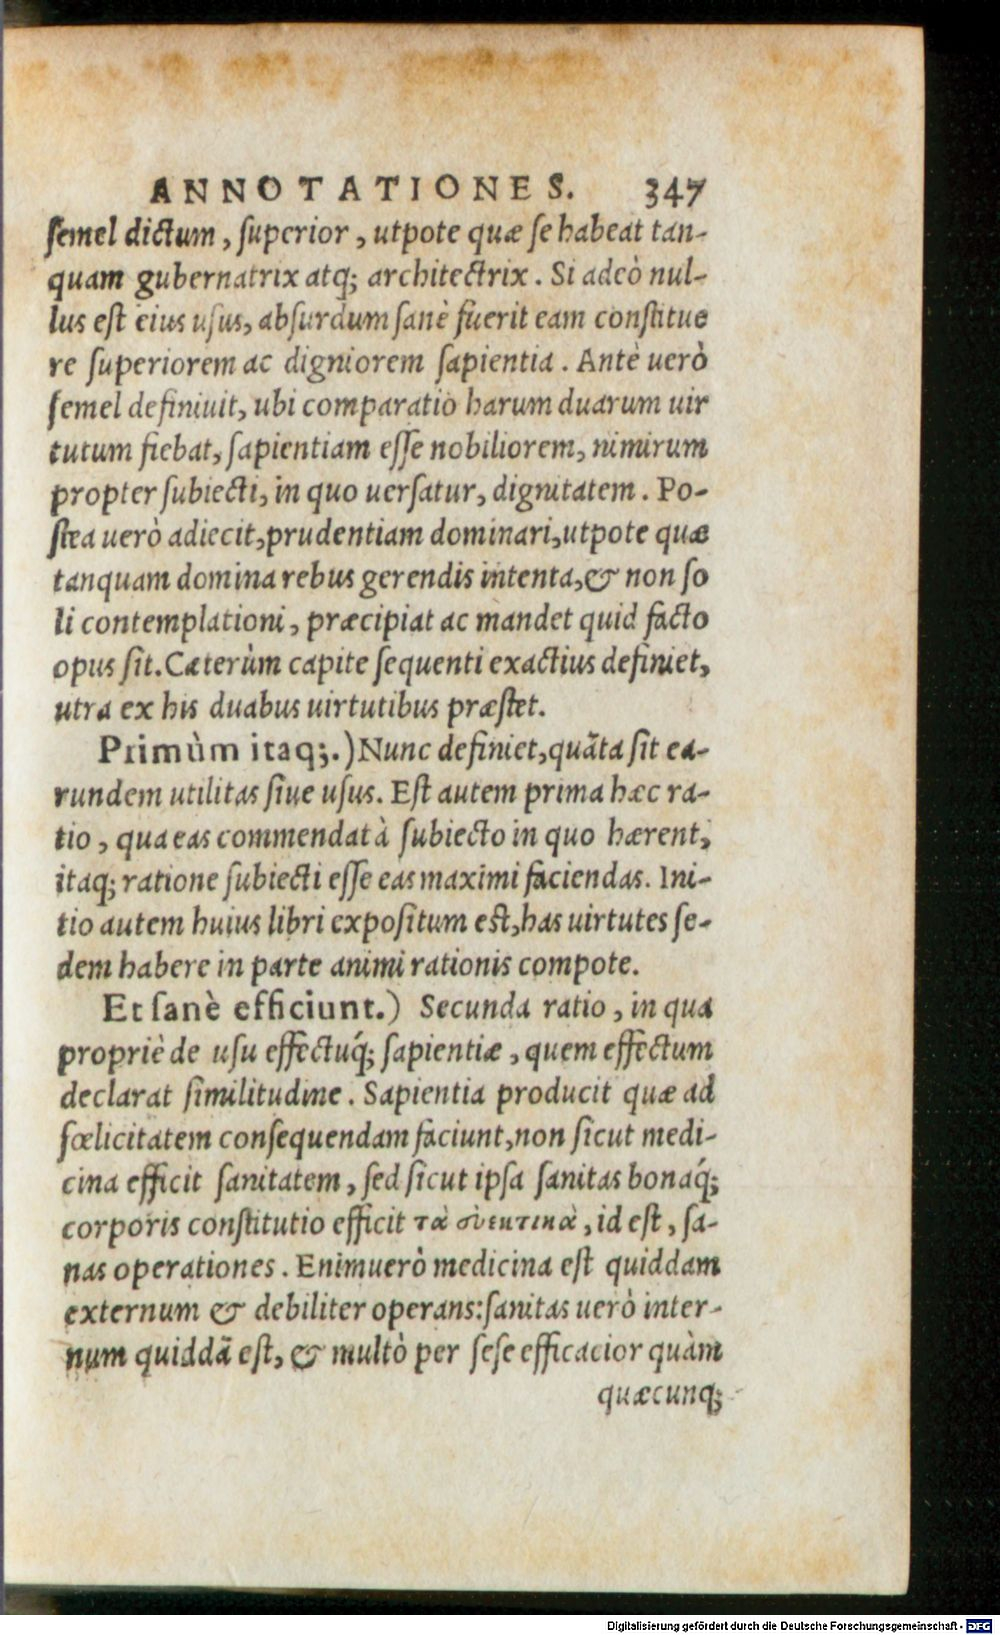 ANNOTATIONES. 347
semel dictum, superior, utpote quæ se habeat tan-
quam gubernatrix atq; architectrix. Si adeò nul-
lus est eius usus, absurdum sanè fuerit eam constitue
re superiorem ac digniorem sapientia. Antè uerò
semel definiuit, ubi comparatio harum duarum uir
tutum fiebat, sapientiam esse nobiliorem, nimirum
propter subiecti, in quo uersatur, dignitatem. Po-
stea uerò adiecit, prudentiam dominari, utpote quæ
tanquam domina rebus gerendis intenta, & non so
li contemplationi, præcipiat ac mandet quid facto
opus sit. Cæterùm capite sequenti exactius definiet,
utra ex his duabus uirtutibus præstet.
Primùm itaq;.) Nunc definiet, quāta sit ea-
rundem utilitas siue usus. Est autem prima hæc ra-
tio, qua eas commendat à subiecto in quo hærent,
itaq; ratione subiecti esse eas maximi faciendas. Ini-
tio autem huius libri expositum est, has uirtutes se-
dem habere in parte animi rationis compote.
Et sanè efficiunt.) Secunda ratio, in qua
propriè de usu effectuq́; sapientiæ, quem effectum
declarat similitudine. Sapientia producit quæ ad
fœlicitatem consequendam faciunt, non sicut medi-
cina efficit sanitatem, sed sicut ipsa sanitas bonaq́;
corporis constitutio efficit τὰ , id est, sa-
nas operationes. Enimuerò medicina est quiddam
externum & debiliter operans: sanitas uerò inter-
num quiddā est, & multò per sese efficacior quàm
quæcunq;
Digitalisierung gefördert durch die Deutsche Forschungsgemeinschaft - DFG